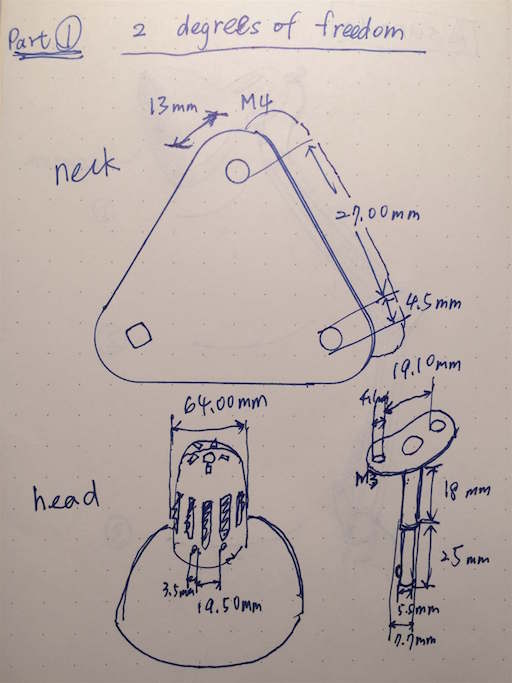 Part ① 2 degrees of freedom
13mm M4
neck
27.00mm
4.5mm
64.00mm
19.10mm
M3
head
18 mm
25mm
3.5mm
19.50mm
7.7mm